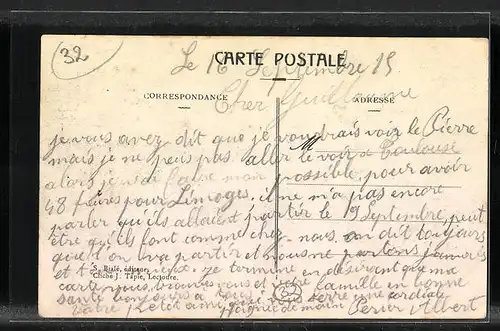 32
CARTE POSTALE
Le 16 Septembre 15
CORRESPONDANCE
ADRESSE
Cher Guillaume
je vous avez dit que je voudrais voir le Pierre
mais je ne peus pas aller le voir a Toulouse
M
alors je mon possible pour avoir
48 heures pour Limoges, il ne m'a pas encore
parler qu'ils allaient partir le 19 Septembre, peut
être qu'ils font comme chez nous, on dit toujours
partir et nous ne partons jamais
et je termine en désirent que ma
S. Bialé, éditeur,
Cliché J. Tapie, Lectoure.
carte vous trouve vous et votre famille en bonne
santé bonjours a tous cordiale
votre petit ami poignée de main Albert